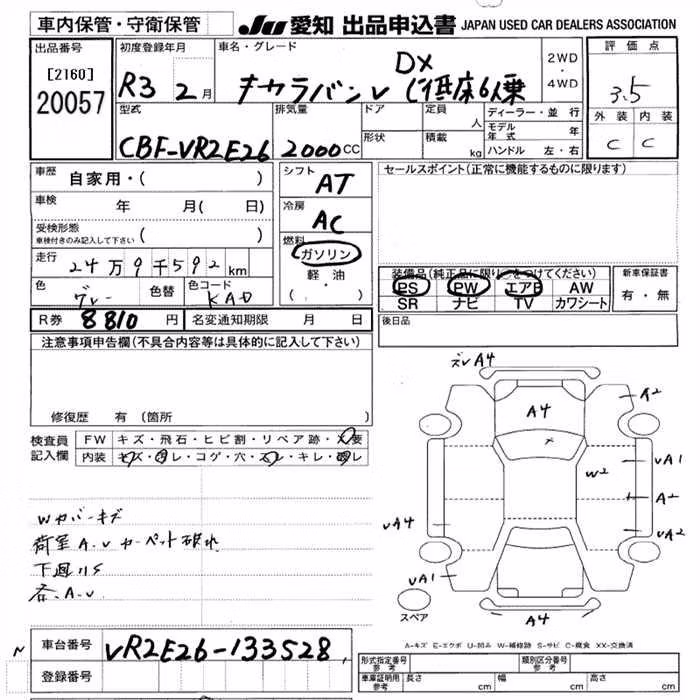 車内保管・守衛保管
JU 愛知 出品申込書 JAPAN USED CAR DEALERS ASSOCIATION
出品番号 初度登録年月 車名・グレード 評価点
[2160]
20057
R3 2月
DX
キャラバンV (低床6人乗
2WD・4WD
3.5
外装 内装
C C
型式 排気量 ドア 定員 人 ディーラー・並行
CBF-VR2E26 2000CC
形状 積載 kg モデル年式 年
ハンドル 左・右
車歴 自家用・( )
シフト AT
セールスポイント(正常に機能するものに限ります)
車検 年 月( 日)
冷房 AC
受検形態 車検付きのみ記入して下さい ( )
燃料 ガソリン
軽油
・
( )
走行 24万9千592km
装備品(純正品に限り○をつけてください) 新車保証書
PS PW エアB AW 有・無
SR ナビ TV カワシート
色 グレー 色替 色コード KAD
R券 8810円 名変通知期限 月 日
後日品
注意事項申告欄(不具合内容等は具体的に記入して下さい)
修復歴 有(箇所
検査員記入欄
FW キズ・飛石・ヒビ割・リペア跡・X要
内装 キズ・汚レ・コゲ・穴・スレ・キレ・破レ
Wカバーキズ
荷室A.Uカーペット破れ
下廻りS
各.A.U
ズレA4
A4
A2
UA1
W2
A2
UA2
UA4
UA1
A4
スペア
A-キズ E-エクボ U-凹み W-補修跡 S-サビ C-腐食 XX-交換済
車台番号 VR2E26-133528
登録番号
形式指定番号 参考 類別区分番号 参考
車庫証明用 参考 長さ cm 幅 cm 高さ cm